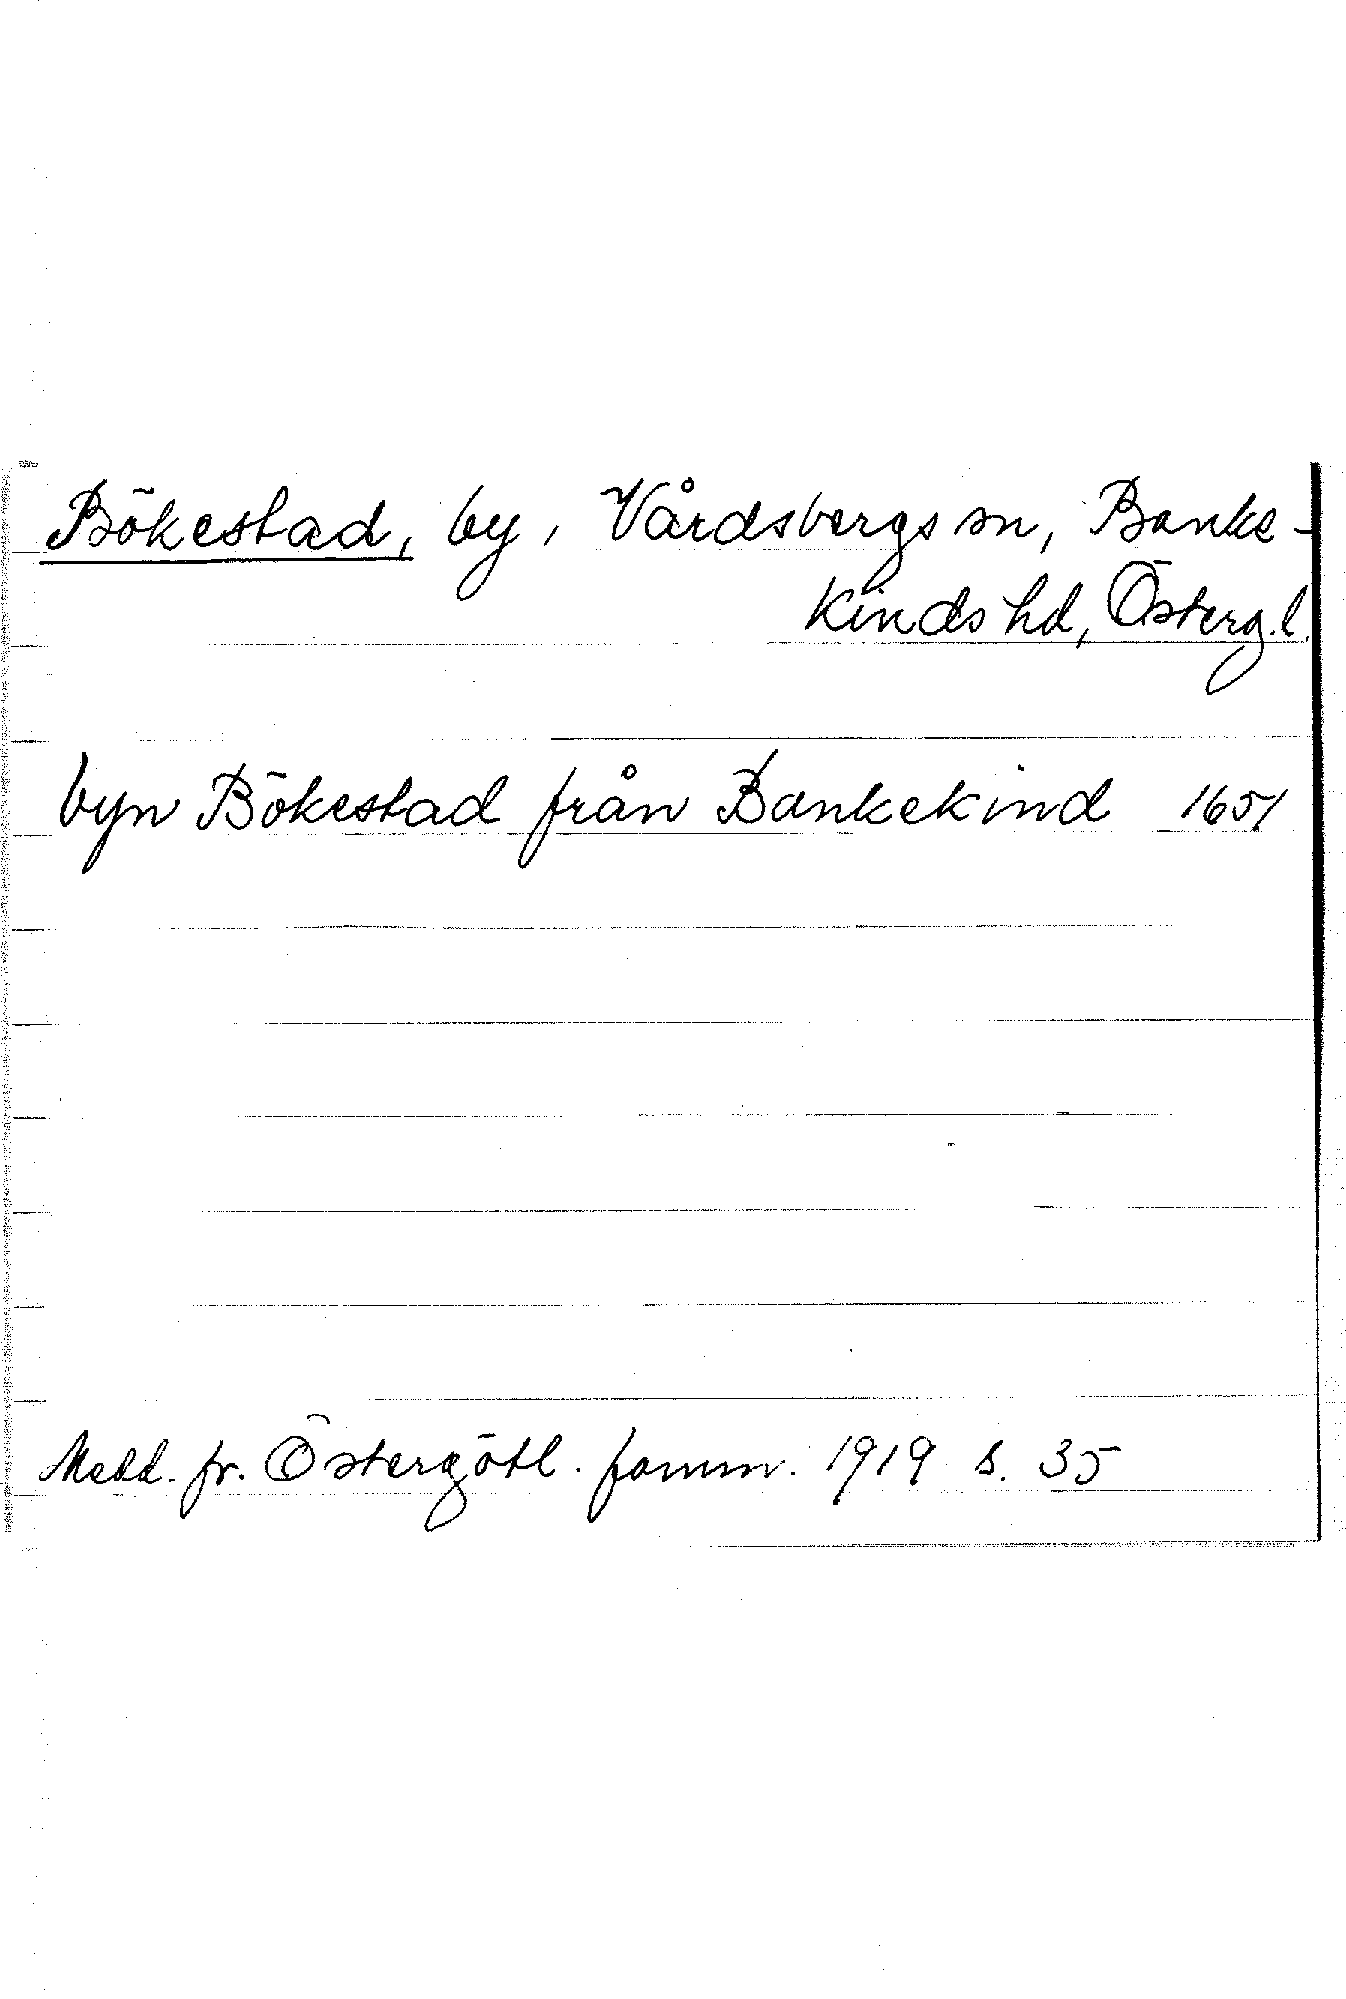 Bökestad, by, Vårdsbergs sn, Banke-
kinds hd, Östergl.
byn Bökestad från Bankekind 1651
Medd. fr. Östergötl. fornm. 1919 s. 35